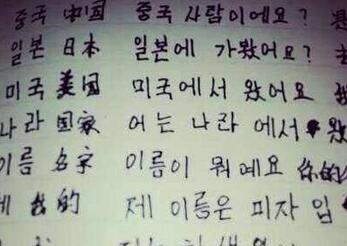 중국 中国 중국 사람이에요? 是
일본 日本 일본에 가봤어요?
미국 美国 미국에서 왔어요
나라 国家 어는 나라 에서 왔어요
이름 名字 이름이 뭐예요 你的
제 我的 제 이름은 미자 입